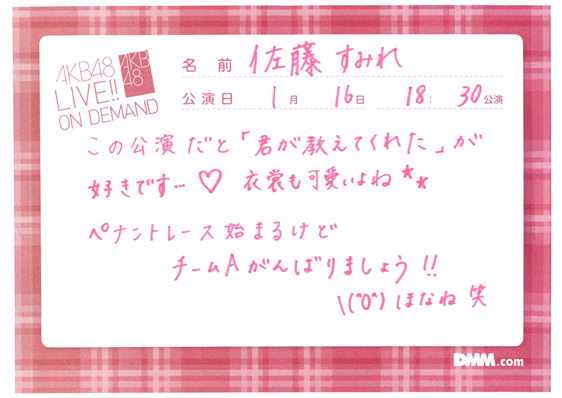 AKB48
LIVE!!
ON DEMAND
AKB
48
名 前 佐藤 すみれ
公演日 1月 16日 18: 30公演
この公演だと「君が教えてくれた」が
好きです… ♡ 衣裳も可愛いよね★★
ペナントレース始まるけど
チームAがんばりましょう!!
\(^o^) ほなね 笑
DMM.com